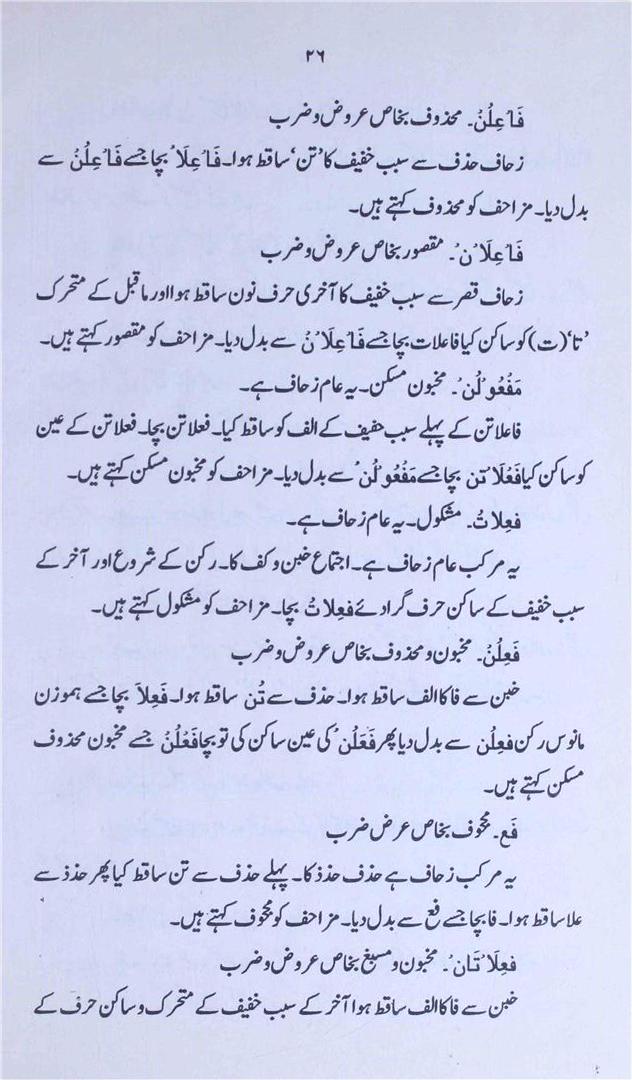 ۲۶
فَاعِلُنْ۔ محذوف بخاص عروض و ضرب
زحاف حذف سے سبب خفیف کا ’تن‘ ساقط ہوا۔ فَاعِلَا بچا جسے فَاعِلُنْ سے
بدل دیا۔ مزاحف کو محذوف کہتے ہیں۔
فَاعِلَانْ۔ مقصور بخاص عروض و ضرب
زحاف قصر سے سبب خفیف کا آخری حرف نون ساقط ہوا اور ماقبل کے متحرک
’تا‘ (ت) کو ساکن کیا فاعلات بچا جسے فَاعِلَانْ سے بدل دیا۔ مزاحف کو مقصور کہتے ہیں۔
مَفْعُولُنْ۔ مخبون مسکن۔ یہ عام زحاف ہے۔
فاعلاتن کے پہلے سبب خفیف کے الف کو ساقط کیا۔ فعلاتن بچا۔ فعلاتن کے عین
کو ساکن کیا فَعْلَاتن بچا جسے مَفْعُولُنْ سے بدل دیا۔ مزاحف کو مخبون مسکن کہتے ہیں۔
فَعِلاتُ۔ مشکول۔ یہ عام زحاف ہے۔
یہ مرکب عام زحاف ہے۔ اجتماع خبن و کف کا۔ رکن کے شروع اور آخر کے
سبب خفیف کے ساکن حرف گرادئے فَعِلَاتُ بچا۔ مزاحف کو مشکول کہتے ہیں۔
فَعِلُنْ۔ مخبون و محذوف بخاص عروض و ضرب
خبن سے فا کا الف ساقط ہوا۔ حذف سے تُن ساقط ہوا۔ فَعِلَا بچا جسے ہموزن
مانوس رکن فعِلُن سے بدل دیا پھر فَعَلُنْ کی عین ساکن کی تو بچا فَعْلُنْ جسے مخبون محذوف
مسکن کہتے ہیں۔
فَع۔ محجوف بخاص عرض ضرب
یہ مرکب زحاف ہے حذف حذذ کا۔ پہلے حذف سے تن ساقط کیا پھر حذذ سے
علا ساقط ہوا۔ فا بچا جسے فع سے بدل دیا۔ مزاحف کو محجوف کہتے ہیں۔
فَعِلَاتَانْ۔ مخبون و مسبغ بخاص عروض و ضرب
خبن سے فا کا الف ساقط ہوا آخر کے سبب خفیف کے متحرک و ساکن حرف کے